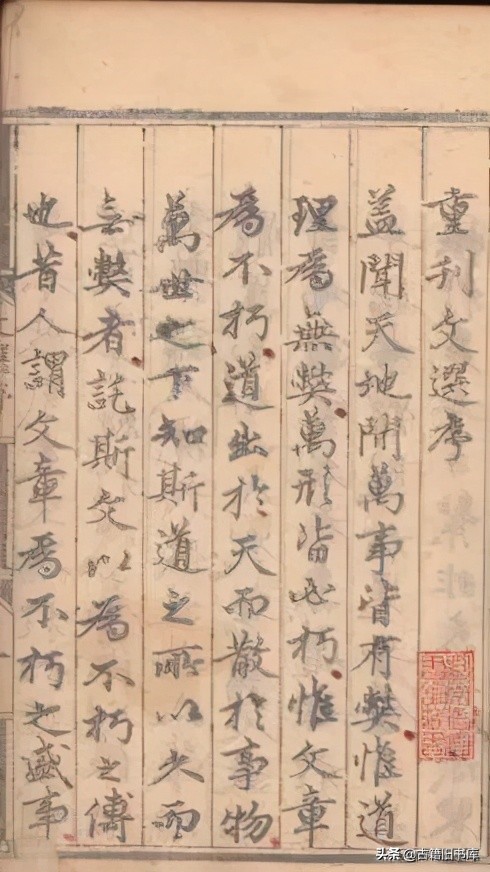 重刊文選序
蓋聞天地間萬事皆有獘惟道
理為無獘萬形皆必朽惟文章
為不朽道出於天而散於事物
萬世之下知斯道之所以久而
無獘者託斯文以為不朽之傳
也昔人謂文章為不朽之盛事
头条 @古籍旧书库